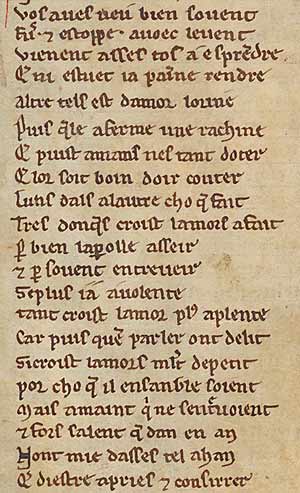 Vos aves veu bien sovent
Fu ⁊ estoppe avoec le vent
Vienent asses tos a esprēdre
E ni estuet ia paine rendre
Altre tels est damor
Puis q̄le aferme une rachine
E puist amans nes tant doter
E lor soit boin doir conter
Luns dals alautre cho q̄ fait
Tres donq̄s croist lamors a fait
ꝑ bien asseir
⁊ ꝑ sovent entreveir
Se plus ia avolente
tant croist lamor plꝰ aplente
Car puis quē parler ont delit
Si croist lamors ml̄t de petit
por cho q̄ il ensanble soient
Mais amaint qͥ ne
⁊ fors salent q̄ dan en an
Nont mie dasses tel ahan
E diestre apries ⁊ consirrer